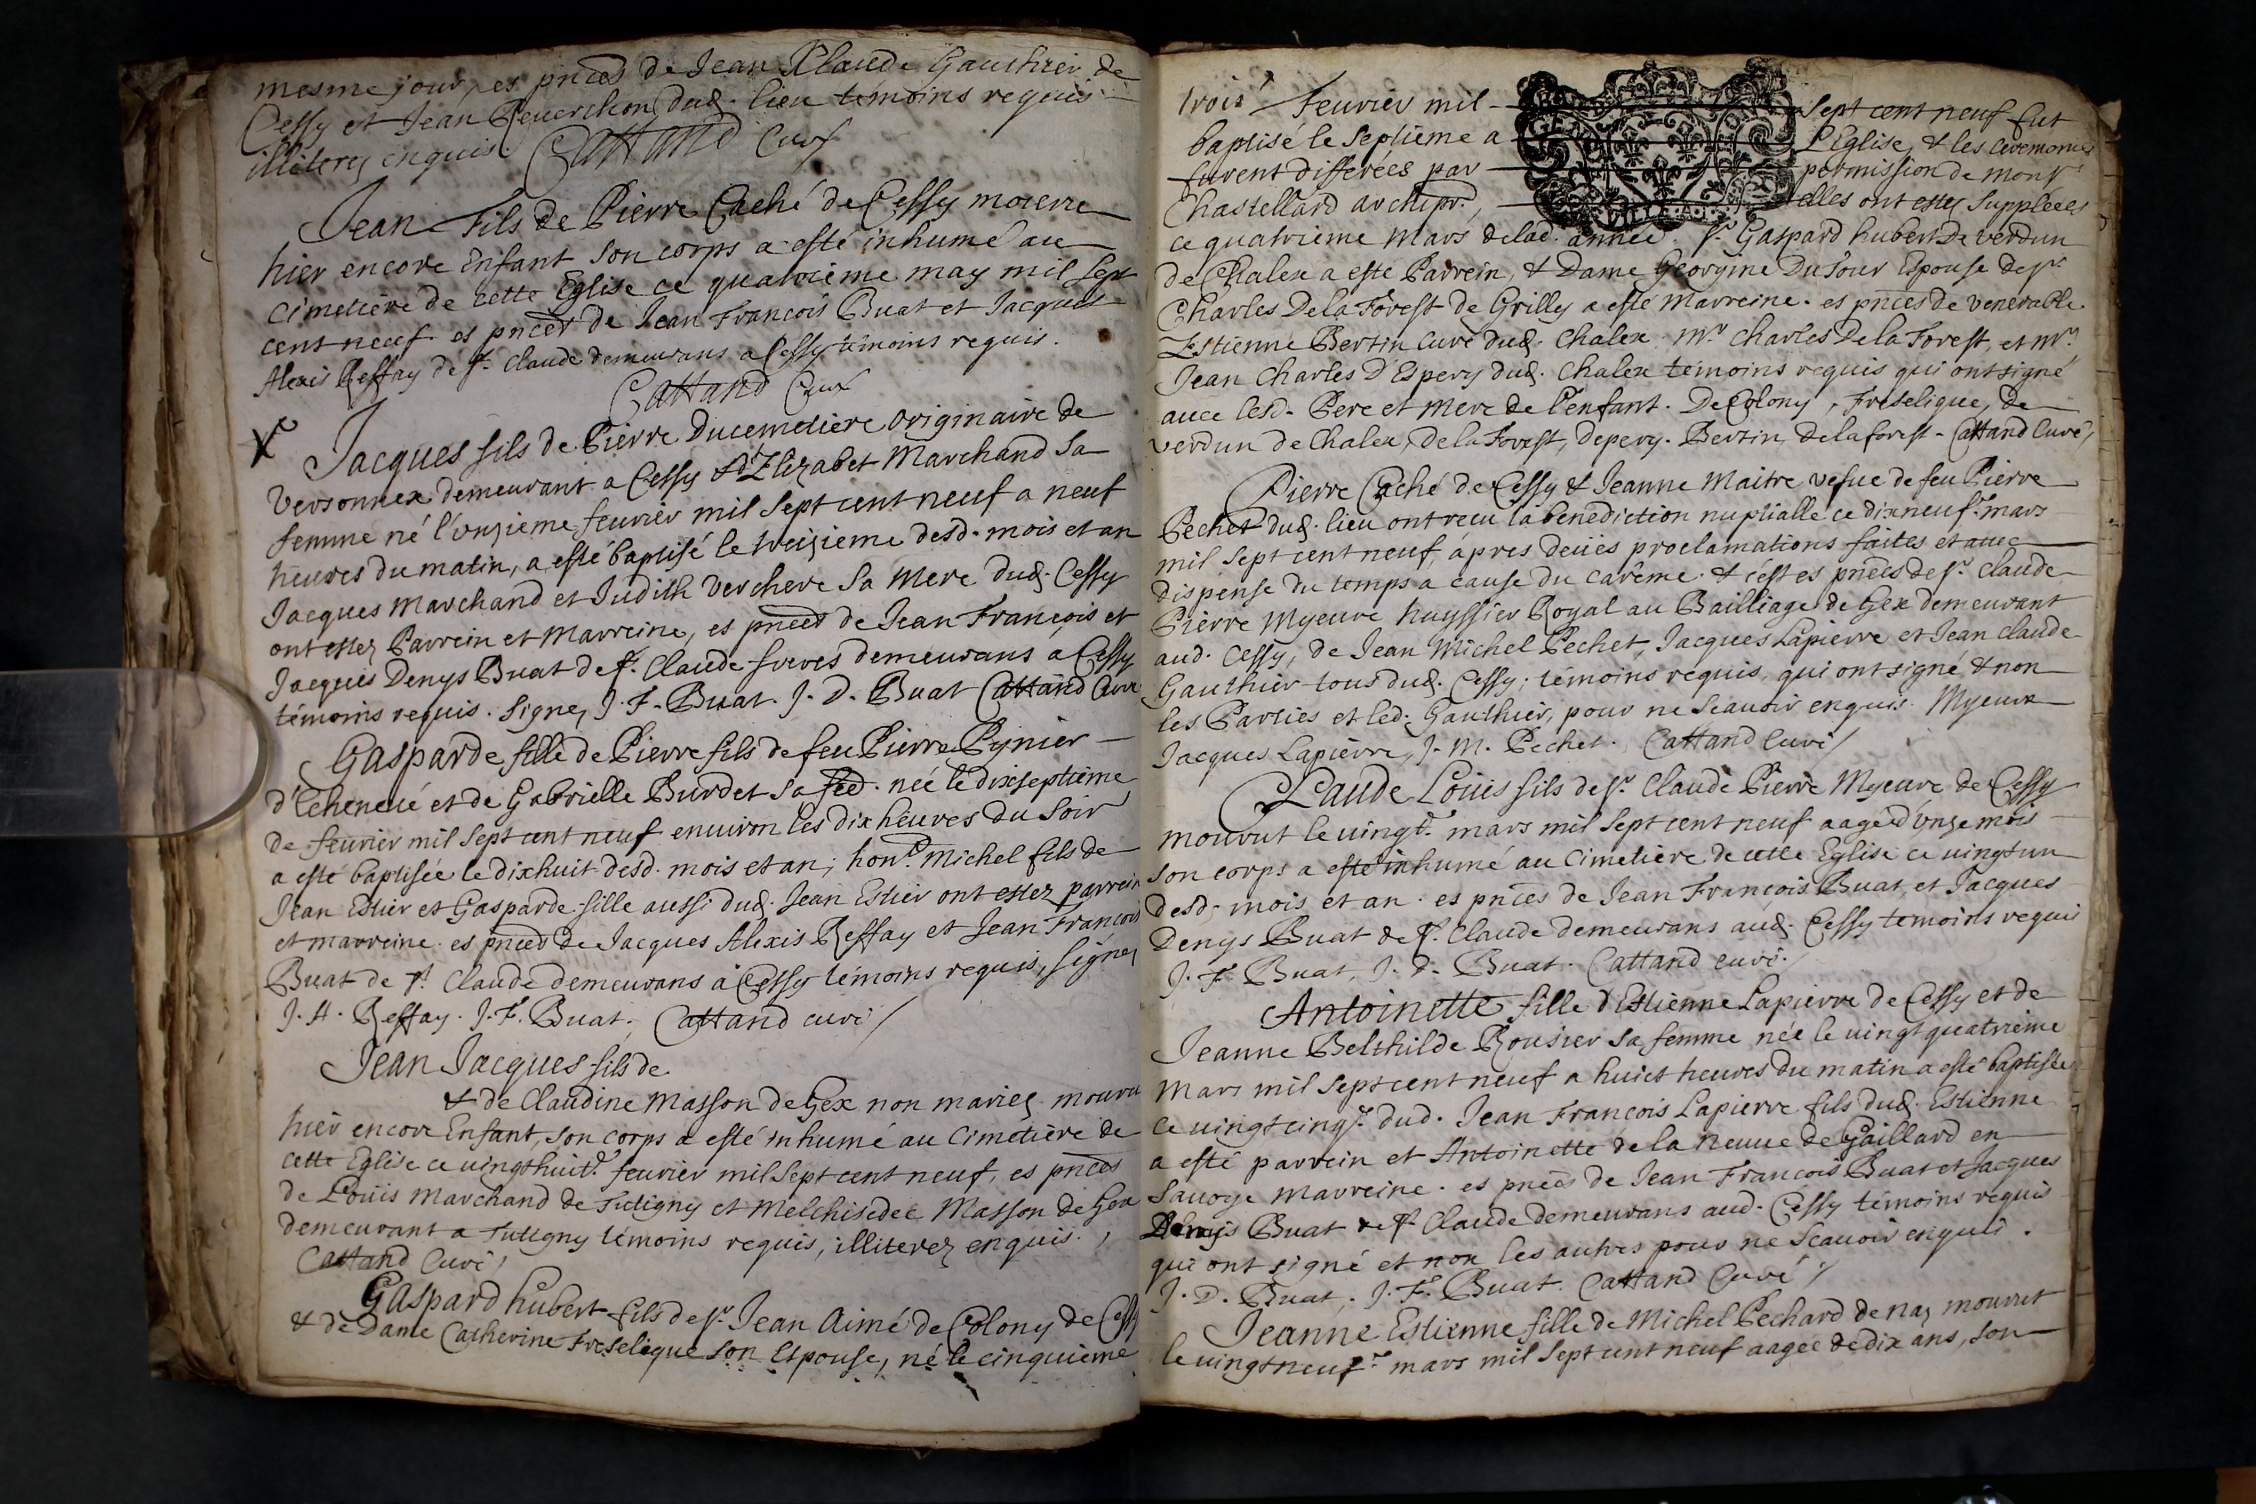 mesme jour, es pnces de Jean Claude Gauthier de
Cessy et Jean Reverchon dud. lieu temoins requis
illiterez enquis. Cattand Curé
Jean fils de Pierre Caché de Cessy mourru
hier encore Enfant son corps a esté inhumé au
Cimetière de cette Eglise ce quatrième may mil sept
cent neuf es pnces de Jean François Buat et Jacques
Alexis Reffay de St. Claude demeurans a Cessy témoins requis.
Cattand Curé
Jacques fils de Pierre Ducemetière originaire de
Versonnex demeurant a Cessy & d'Elizabet Marchand sa
femme né l'onzieme feurier mil sept cent neuf a neuf
heures du matin, a esté baptisé le treizieme desd. mois et an
Jacques Marchand et Judith Verchere sa Mere dud. Cessy
ont estez Parrein et Marreine, es pnces de Jean François et
Jacques Denys Buat de St. Claude freres demeurans a Cessy
témoins requis. Signez J. F. Buat. J. D. Buat Cattand Curé
Gasparde fille de Pierre fils de feu Pierre Pynier
d'Echeneué et de Gabrielle Burdet sa fed. née le dixseptième
de feurier mil sept cent neuf enuiron les dix heures du soir
a esté baptisée le dixhuit desd. mois et an; hon.e Michel fils de
Jean Estier et Gasparde fille aussi dud. Jean Estier ont estez parrein
et marreine. es pnces de Jacques Alexis Reffay et Jean François
Buat de St. Claude demeurans à Cessy témoins requis, signez
J. A. Reffay. J. F. Buat. Cattand curé
Jean Jacques fils de
& de Claudine Masson de Gex non mariez mouru
hier encore Enfant, son corps a esté inhumé au Cimetière de
cette Eglise ce uingthuite. feurier mil sept cent neuf, es pnces
de Loüis Marchand de Tutigny et Melchisedec Masson de Gex
demeurant a Tutigny témoins requis, illiterez enquis.
Cattand Curé
Gaspard hubert fils de sr. Jean Aimé de Colony de Cessy
& de Dame Catherine Freselique son Espouse, né le cinquieme
trois feurier mil sept cent neuf fut
baptisé le septieme a l'Eglise, & les cérémonies
furent differées par permission de monsr
Chastellard archipr., elles ont estez suppléées
ce quatrieme Mars delad. année. sr. Gaspard hubert De verdun
de Chalex a esté Parrein, & Dame Georgine Du four Espouse de sr
Charles Dela Forest de Grilly a esté marreine. es pnces de venerable
Estienne Bertin Curé dud. Chalex. mr. Charles Dela Forest, et mr.
Jean Charles D'Espery dud. Chalex témoins requis qui ont signé
auec lesd. Pere et mere de l'enfant. De Colony, Freselique, de
verdun de Chalex, dela Forest, depery. Bertin, delaforest. Cattand Curé,
Pierre Caché de Cessy & Jeanne Maitre vefue de feu Pierre
Pechet dud. lieu ont receu la benediction nuptialle ce dixneufe. mars
mil sept cent neuf, àpres deües proclamations faites et auec
dispense du temps a cause du carême. & c'est es pnces de sr. Claude
Pierre Myeure huyssier Royal au Bailliage de Gex demeurant
aud. Cessy, de Jean Michel Pechet, Jacques Lapierre et Jean claude
Gauthier tous dud. Cessy; témoins requis, qui ont signé & non
les Parties et led. Gauthier, pour ne scauoir enquis. Myeure
Jacques Lapierre, J. M. Pechet. Cattand Curé
Claude Loüis fils de sr. Claude Pierre Myeure de Cessy
mourut le uingte. mars mil sept cent neuf aagé d'onze mois
son corps a esté inhumé au Cimetière de cette Eglise ce uingt un
desd. mois et an. es pnces de Jean François Buat, et Jacques
Denys Buat de St. Claude demeurans aud. Cessy temoins requis
J. F. Buat, J. D. Buat. Cattand curé.
Antoinette fille d'Estienne Lapierre de Cessy et de
Jeanne Belthilde Rousier sa femme née le uingtquatrième
Mars mil sept cent neuf a huict heures du matin a esté baptisée
ce uingtcinqe. dud. Jean François Lapierre fils dud. Estienne
a esté parrein et Antoinette de la neuue de Gaillard en
Sauoye marreine. es pnces de Jean François Buat et Jacques
Denys Buat de St. Claude demeurans aud. Cessy témoins requis
qui ont signé et non les autres pour ne scauoir enquis.
J. D. Buat. J. F. Buat. Cattand Curé
Jeanne Estienne fille de Michel Pechard de naz mourut
le uingtneufe. mars mil sept cent neuf aagée de dix ans, son